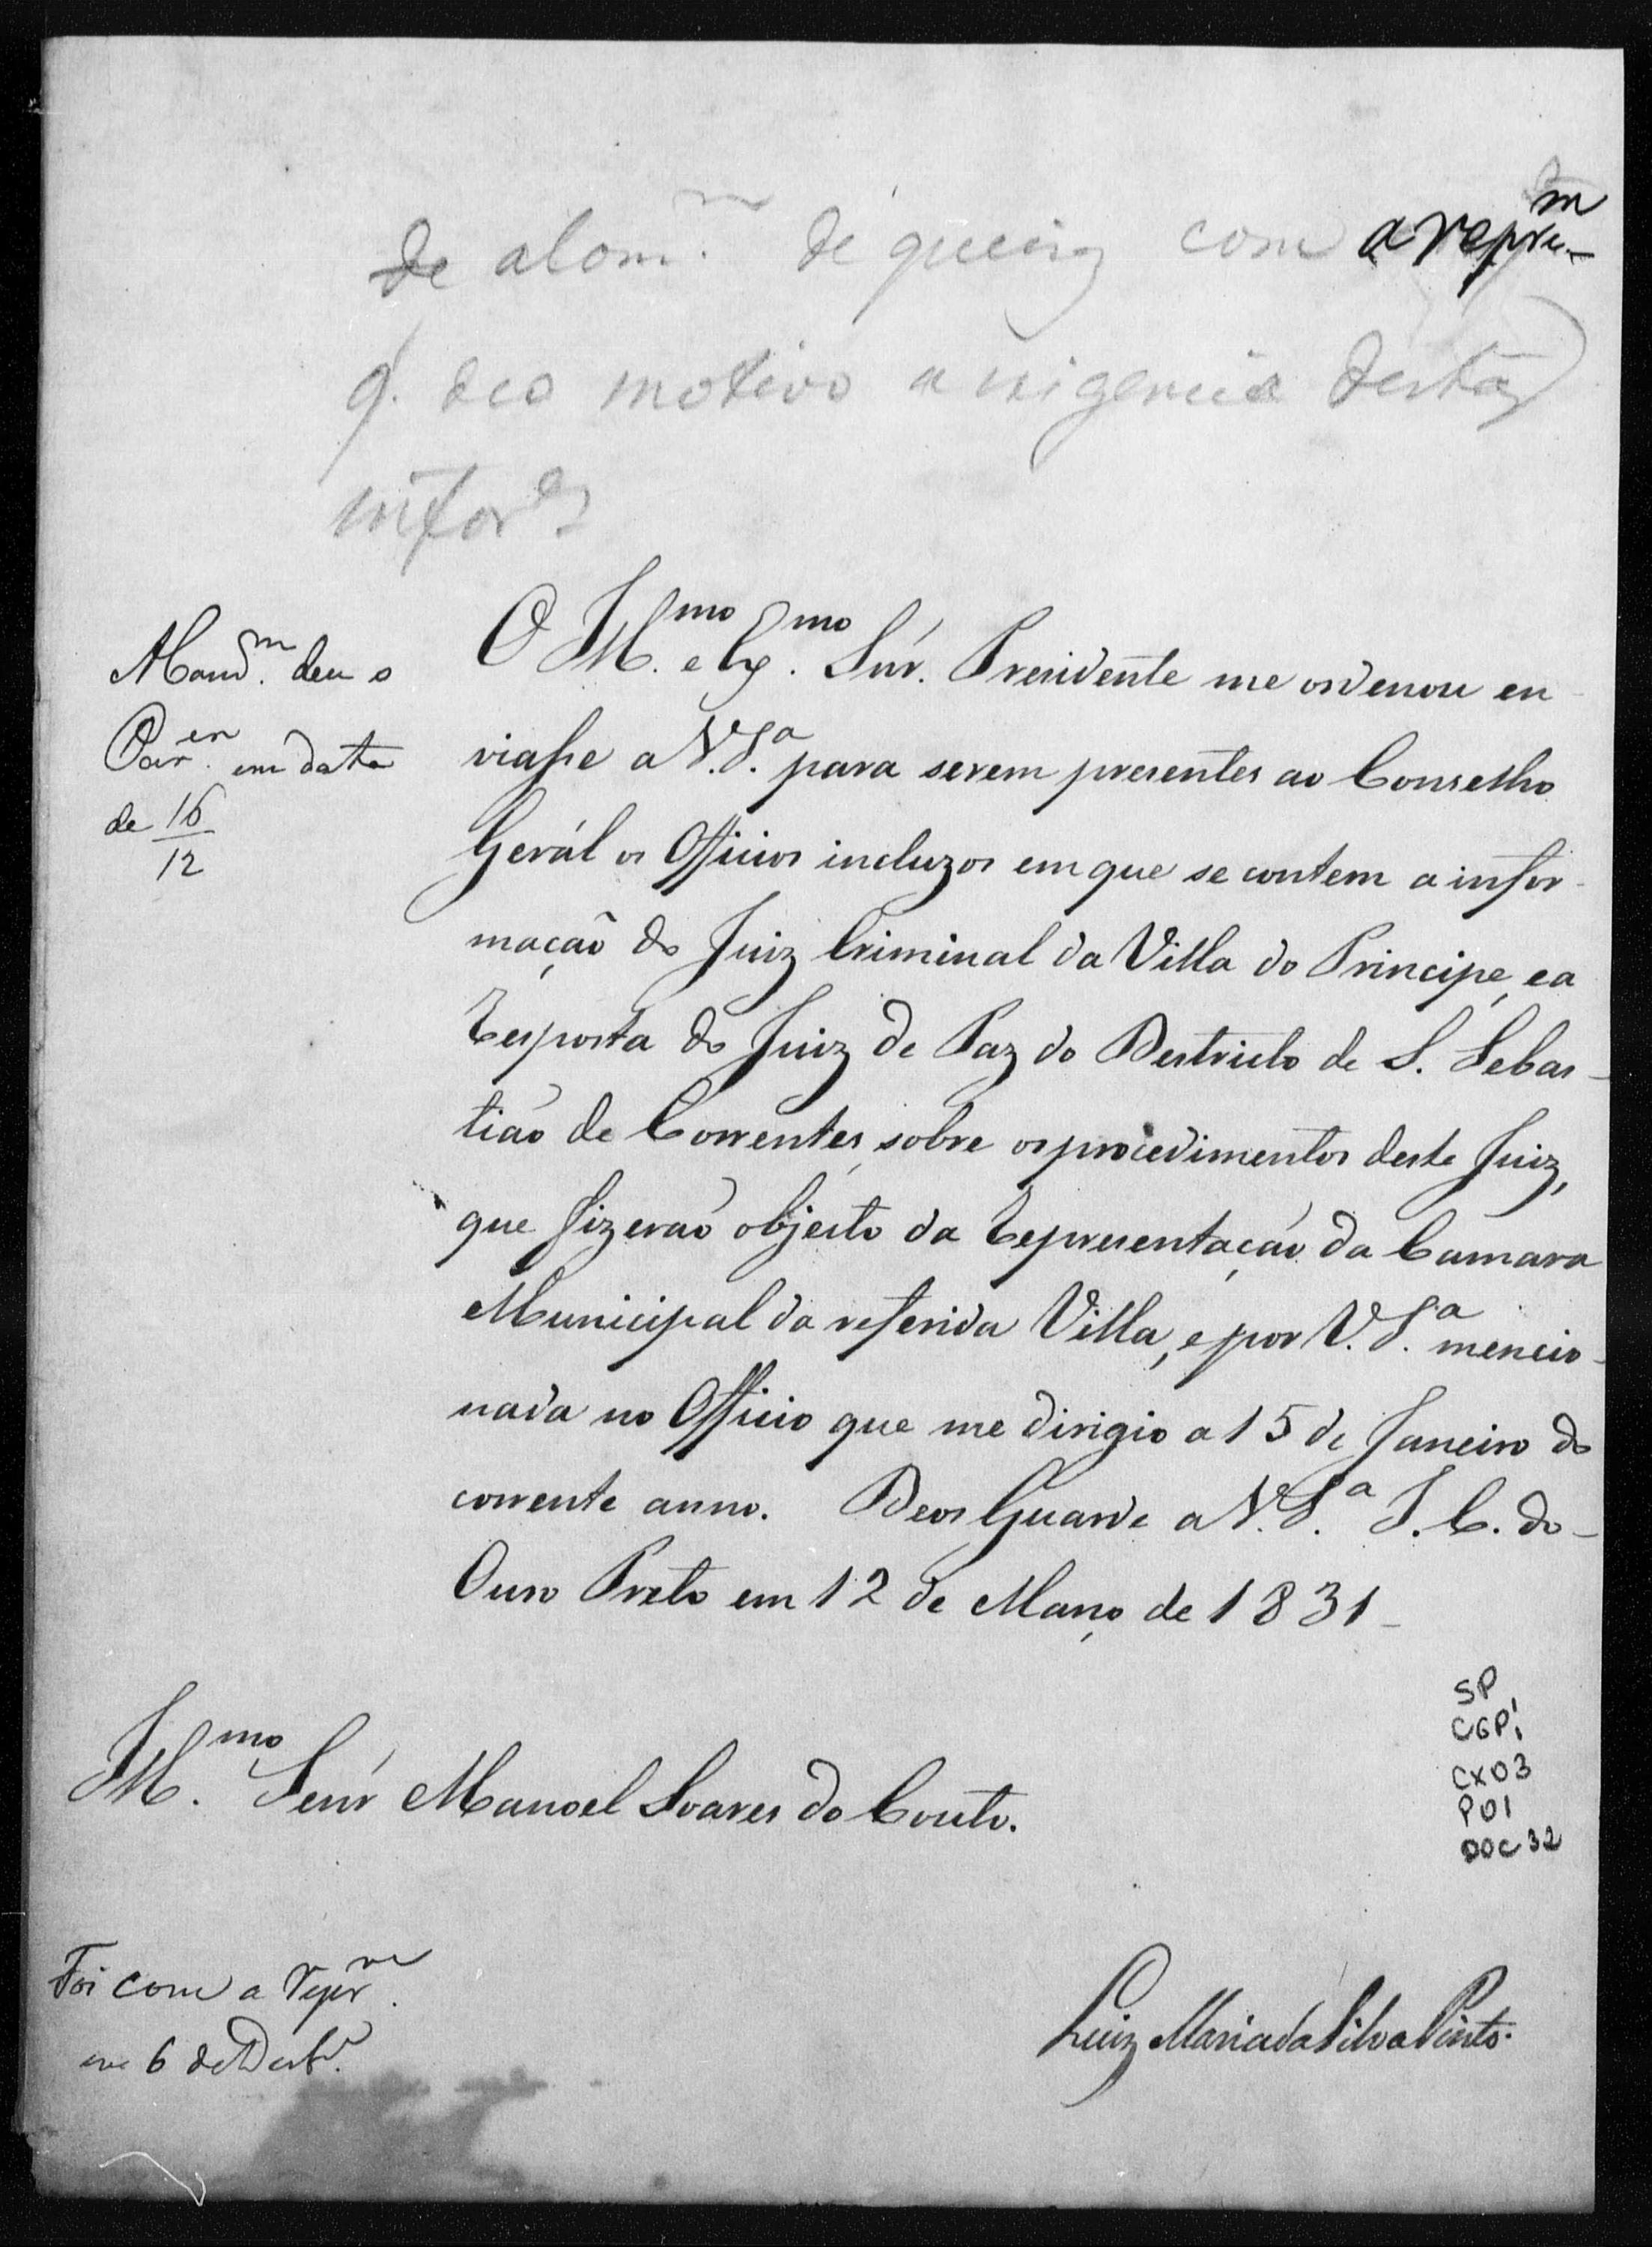 de com a repre.
q. deo motivo a exigencia desta
infor.es
Mand.m deu o
Par.er em data
de 16
12
O Ill.mo e Ex.mo Snr. Presidente me ordenou en-
viasse a V.S.a para serem presentes ao Conselho
Gerál os Officios incluzos em que se contem a infor-
mação do Juiz Criminal da Villa do Principe, e a
Resposta do Juiz de Paz do Destricto de S. Sebas-
tião de Correntes, sobre os procedimentos deste Juiz,
que fizerão objecto da Representação da Camara
Municipal da referida Villa, e por V.S.a mencio-
nada no Officio que me dirigio a 15 de Janeiro do
corrente anno. Deos Guarde a V.S.a I. C. do
Ouro Preto em 12 de Março de 1831
Ill.mo Senr Manoel Soares do Couto.
SP
CGP1
CX03
P01
DOC 32
Foi com a repr.
em 6 de Dezbr.
Luiz Maria da Silva Pinto.